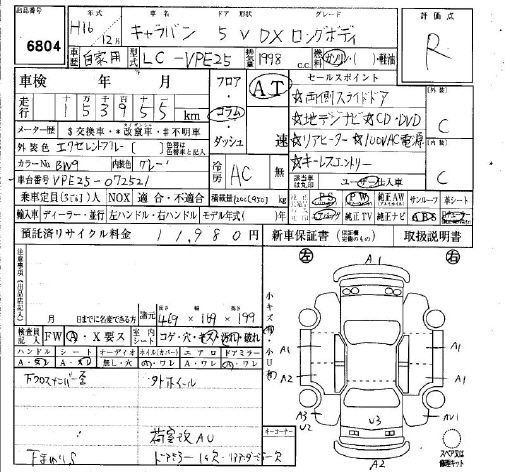 出品番号 6804
年式 H16 / 12月
車名 キャラバン
ドア 形状 5 V
グレード DX ロングボディ
評価点 R
車歴 自家用
型式 LC-VPE25
排気量 1998 c.c.
燃料 ガソリン ( ) 軽油
車検 年 月
フロア・コラム・ダッシュ
AT 速
セールスポイント
走行 十153955 km
☆両側スライドドア
☆地デジナビ☆CD・DVD
☆リアヒーター☆100VAC電源
☆キーレスエントリー
外装 C
内装 C
メーター歴 $交換車・*改竄車・#不明車
外装色 エクセレントブルー
カラーNo. BW9
内装色 グレー
冷房 AC
無
車台番号 VPE25-072521
該当車は丸印 ユーザー仕入車
乗車定員
NOX 適合・不適合
積載量
年
PS PW 純正AW サンルーフ 革シート
輸入車 ディーラー・並行 左ハンドル・右ハンドル モデル年式( )
エアバッグ 純正TV 純正ナビ ABS
預託済リサイクル料金 11,980円
新車保証書
取扱説明書
注意事項
月 日までに名変できる方
諸元 長さ 469 × 幅 169 × 高さ 199
検査員記入 FW A・X要ス
室内シート コゲ・穴・キズ・汚れ・破れ
ハンドル シート オーディオ ホイル(カバー) エアロ ドアミラー
左 A1 右
A1 A1
A2 A1
A3 U2 AU1
U3
A2
小キズ 小U
下クロスメンバー歪
タトホイール
荷室改 AU
下まわりS
キーコーナー
スペア又は修理キット